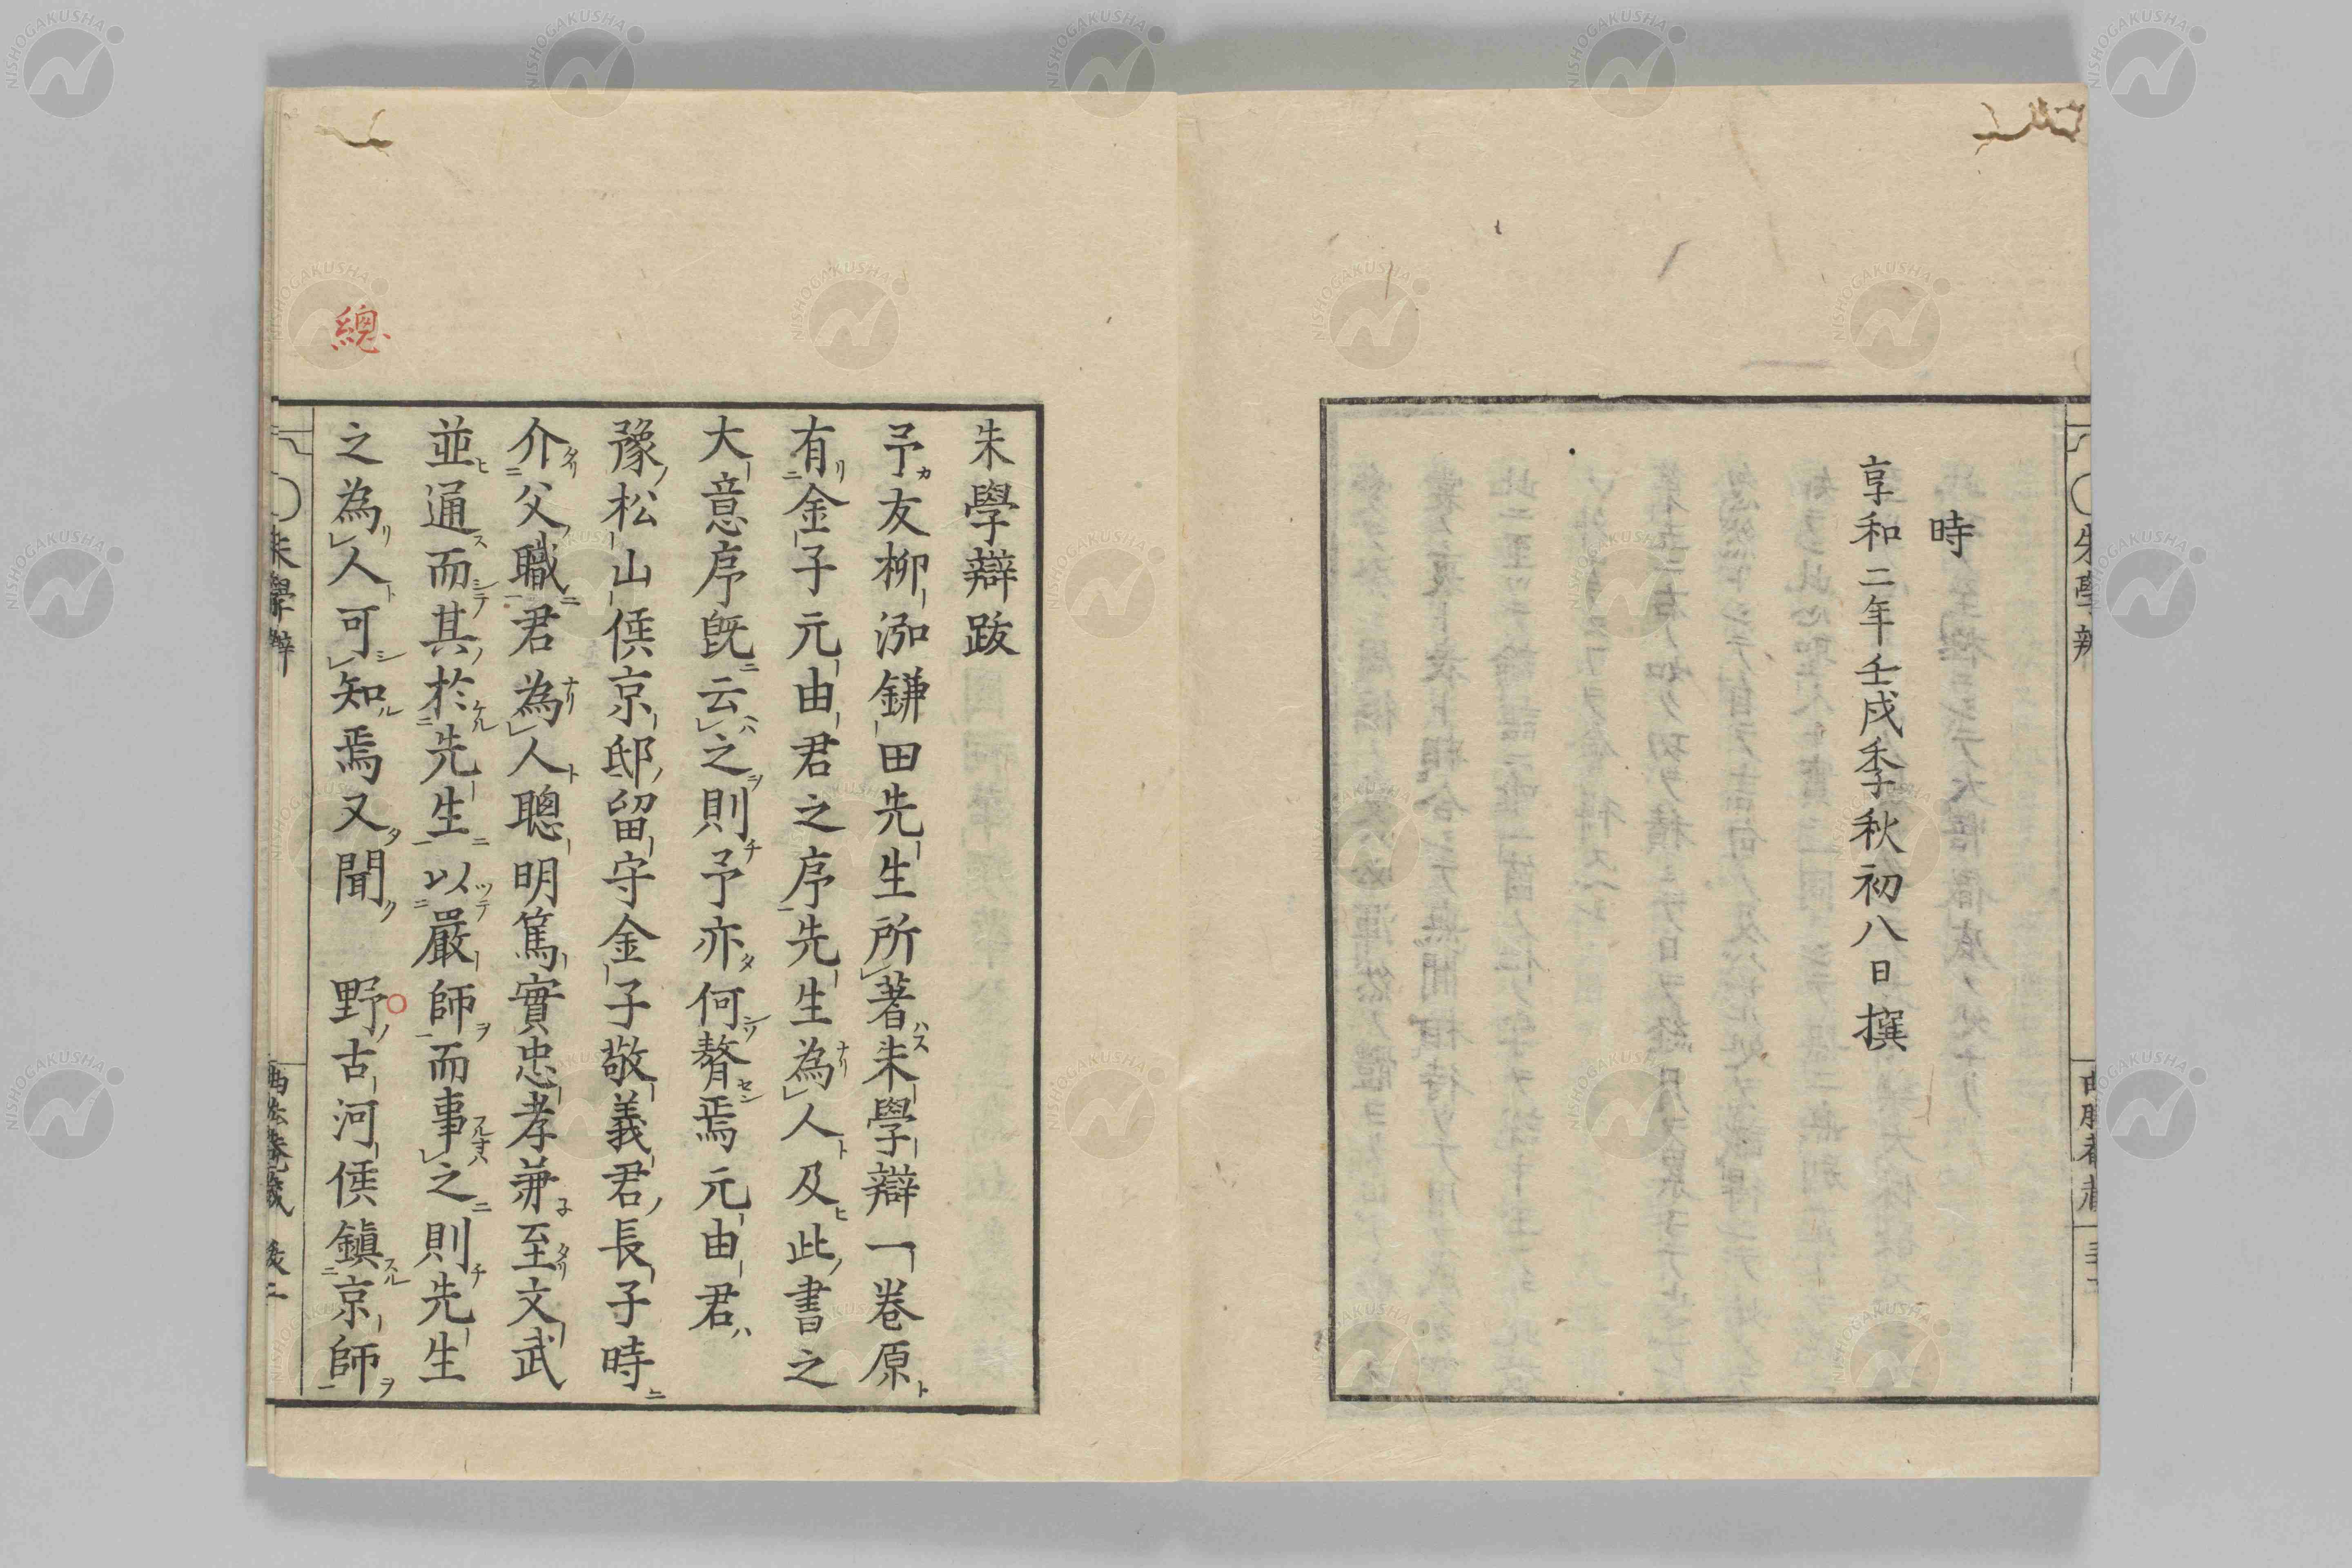 時
享和二年壬戌季秋初八日撰
朱學辯跋
予友柳泓鎌田先生所著朱學辯一卷原
有金子元由君之序先生為人及此書之
大意序既云之則予亦何贅焉元由君
豫松山侯京邸留守金子敬義君長子時
介父職君為人聰明篤實忠孝兼至文武
並通而其於先生以嚴師而事之則先生
之為人可知焉又聞 野古河侯鎮京師
總
朱學辨
NISHOGAKUSHA